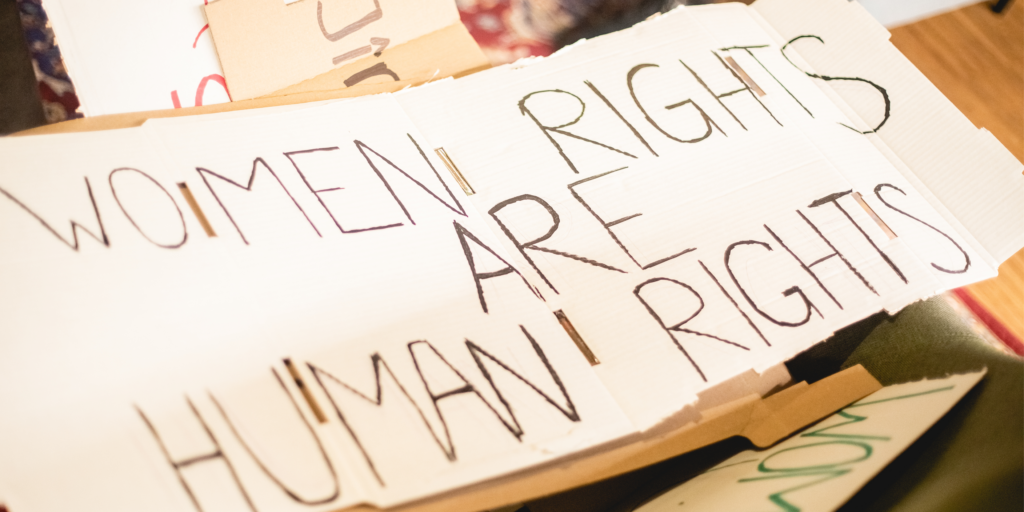 WOMEN RIGHTS
ARE
HUMAN RIGHTS